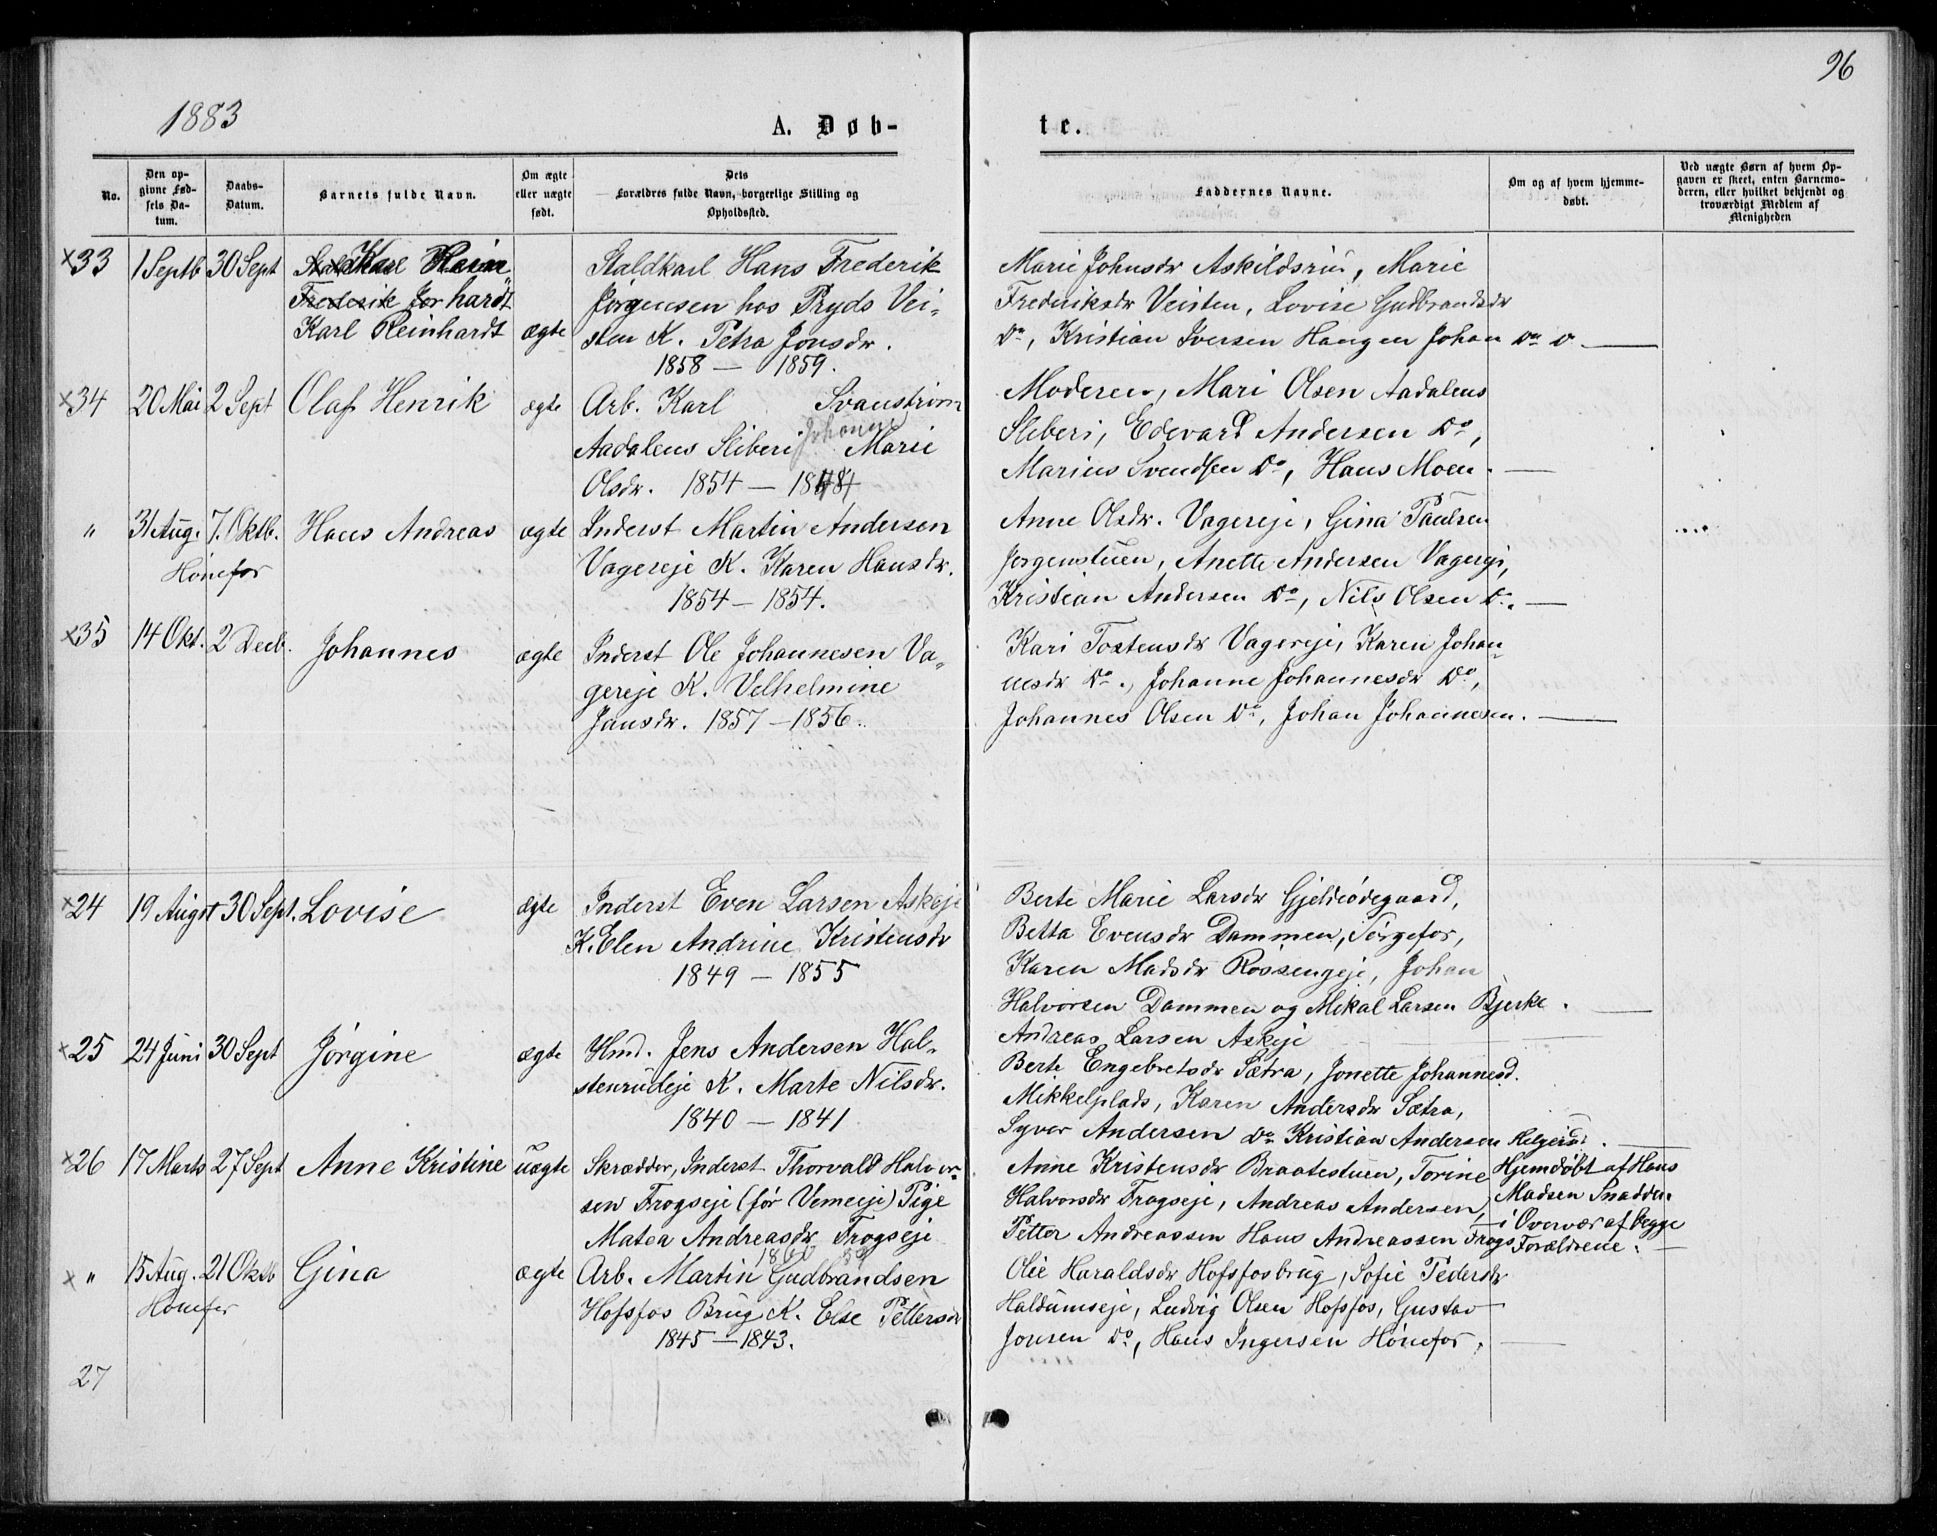 96
1883
A. Døb-
te.
No.
Den op-
givne Fød-
sels Da-
tum.
Daabs-
Datum.
Barnets fulde Navn.
Om ægte
eller uægte
født.
Dets
Forældres fulde Navn, borgerlige Stilling og
Opholdssted.
Faddernes Navne.
Om og af hvem hjemme-
døbt.
Ved uægte Børn af hvem Op-
gaven er skeet, enten Barnemo-
deren, eller hvilket bekjendt og
troværdigt Medlem af
Menigheden
×33 1 Septb 30 Sept Karl
Frederik
Karl Reinhardt ægte
Staldkarl Hans Frederik
Jørgensen hos Pryds Vei-
sten K. Petra Jonsdr.
1858 — 1859.
Marie Johnsdr Askildsrud, Marie
Frederiksdr Veisten, Lovise Gudbrandsdr
Do, Kristian Iversen Haugen Johan Do
×34 20 Mai 2 Sept Olaf Henrik ægte
Arb. Karl Svanstrøm
Aadalens Sliberi Johanne Marie
Olsdr. 1854 —
Moderen, Mari Olsen Aadalens
Sliberi, Edevard Andersen Do,
Marius Svendsen Do, Hans Moen.
" 31 Aug. 7. Oktb. Hans Andreas ægte
Hønefos
Inderst Martin Andersen
Vagereje K. Karen Hansdr.
1854 — 1854.
Anne Olsdr. Vagereje, Gina Paulsen
Jorgenstuen, Anette Andersen Vagereje,
Kristian Andersen Do, Nils Olsen Do.
×35 14 Okt. 2 Decb. Johannes ægte
Inderst Ole Johannesen Va-
gereje K. Velhelmine
Jansdr. 1857 – 1856.
Kari Tostensdr Vagereje, Karen Johan-
nesdr Do., Johanne Johannesdr Do,
Johannes Olsen Do, Johan Johannesen.
×24 19 Augst 30 Sept. Lovise ægte
Inderst Even Larsen Askeje
K. Elen Andrine Kristensdr
1849 — 1855
Berte Marie Larsdr Gjeldeødegaard,
Betta Evensdr Dammen,
Karen Madsdr Rossengeje, Johan
Halvorsen Dammen og Mikal Larsen Bjerke.
Andreas Larsen Askeje
×25 24 Juni 30 Sept Jørgine ægte
Hmd. Jens Andersen Hal-
stenrudeje K. Marte Nilsdr.
1840 — 1841
Berte Engebretsdr Sætra, Jonette Johannesd.
Mikkelplads, Karen Andersdr Sætra,
Syver Andersen Do Kristian Andersen Helgerud.
×26 17 Marts 27 Sept Anne Kristine uægte
Skrædder, Inderst Thorvald Halvor-
sen Frogseje (før Vemeeje) Pige
Matea Andreasdr Frogseje
1860 59
Anne Kristensdr Braatestuen, Torine
Halvorsdr Frogseje, Andreas Andersen,
Petter Andreassen Hans Andreassen Frogs
Hjemdøbt af Hans
Madsen Snadden
i Overvær af begge
Forældrene.
× " 15 Aug. 21 Oktb Gina ægte
Hønefos
Arb. Martin Gudbrandsen
Hofsfos Brug K. Else Pettersdr
1845 — 1843.
Olie Haraldsdr Hofsfosbrug, Sofie Pedersdr
Haldumseje, Ludvig Olsen Hofsfos, Gustav
Jonsen Do, Hans Ingersen Hønefos.
27